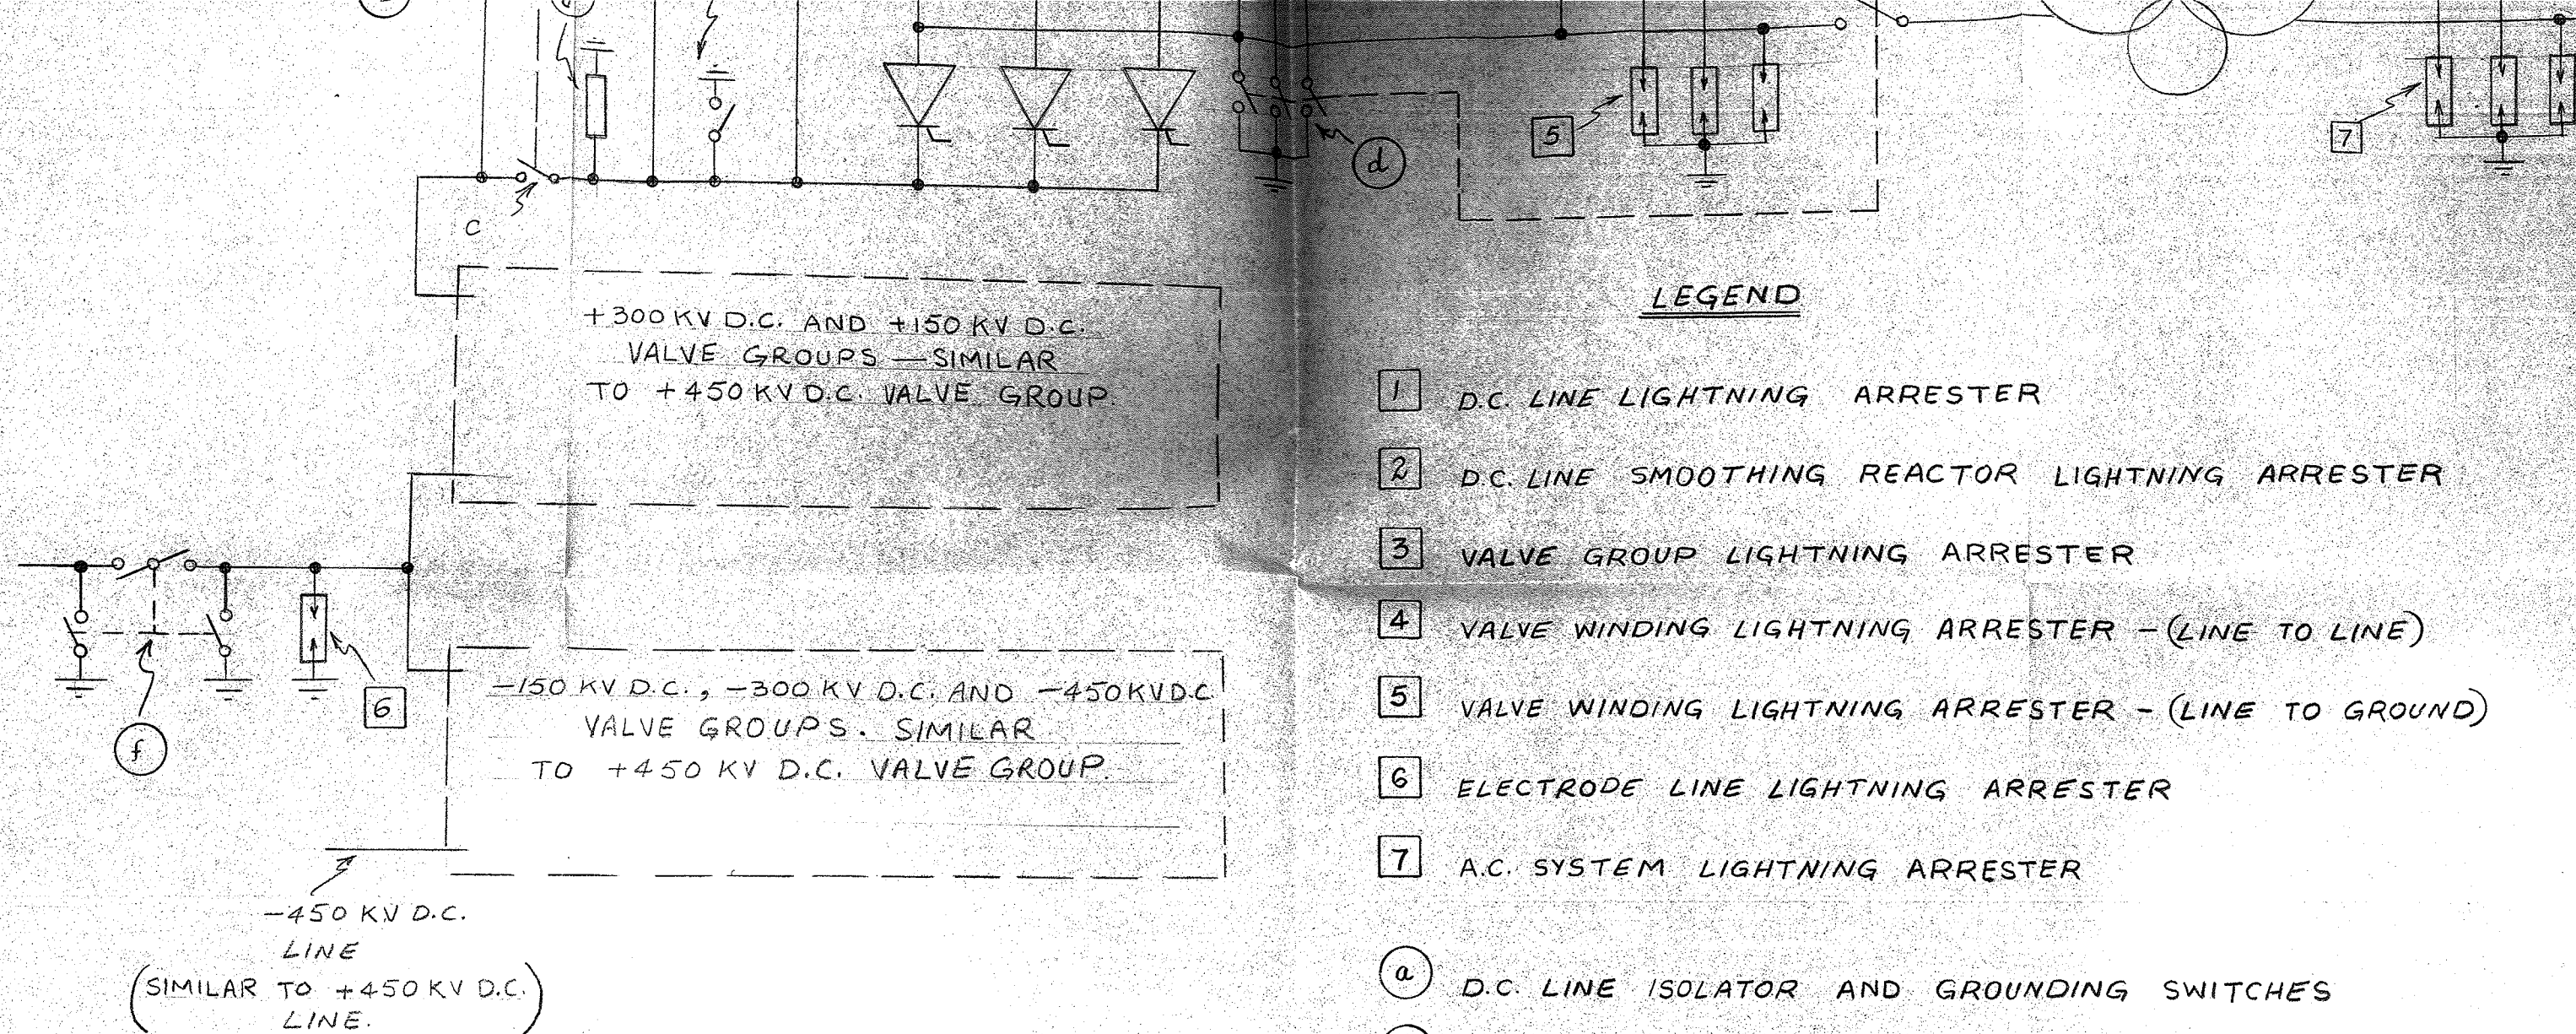 5
d
7
C
+300 KV D.C. AND +150 KV D.C.
VALVE GROUPS — SIMILAR
TO +450 KV D.C. VALVE GROUP.
6
f
-150 KV D.C., -300 KV D.C. AND -450 KV D.C.
VALVE GROUPS. SIMILAR
TO +450 KV D.C. VALVE GROUP.
-450 KV D.C.
LINE
(SIMILAR TO +450 KV D.C.
LINE.)
LEGEND
1 D.C. LINE LIGHTNING ARRESTER
2 D.C. LINE SMOOTHING REACTOR LIGHTNING ARRESTER
3 VALVE GROUP LIGHTNING ARRESTER
4 VALVE WINDING LIGHTNING ARRESTER - (LINE TO LINE)
5 VALVE WINDING LIGHTNING ARRESTER - (LINE TO GROUND)
6 ELECTRODE LINE LIGHTNING ARRESTER
7 A.C. SYSTEM LIGHTNING ARRESTER
a D.C. LINE ISOLATOR AND GROUNDING SWITCHES